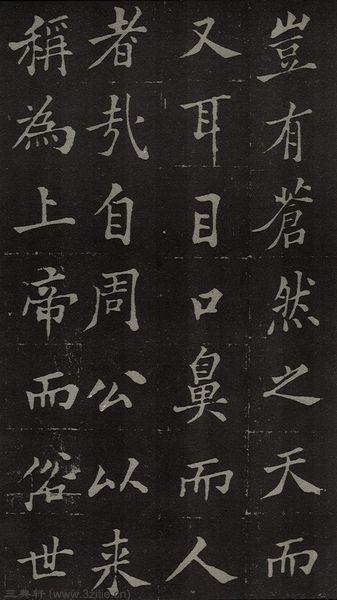 豈有蒼然之天而
又耳目口鼻而人
者㢤自周公以来
稱為上帝而俗世
三典轩 (www.3ztie.cn)